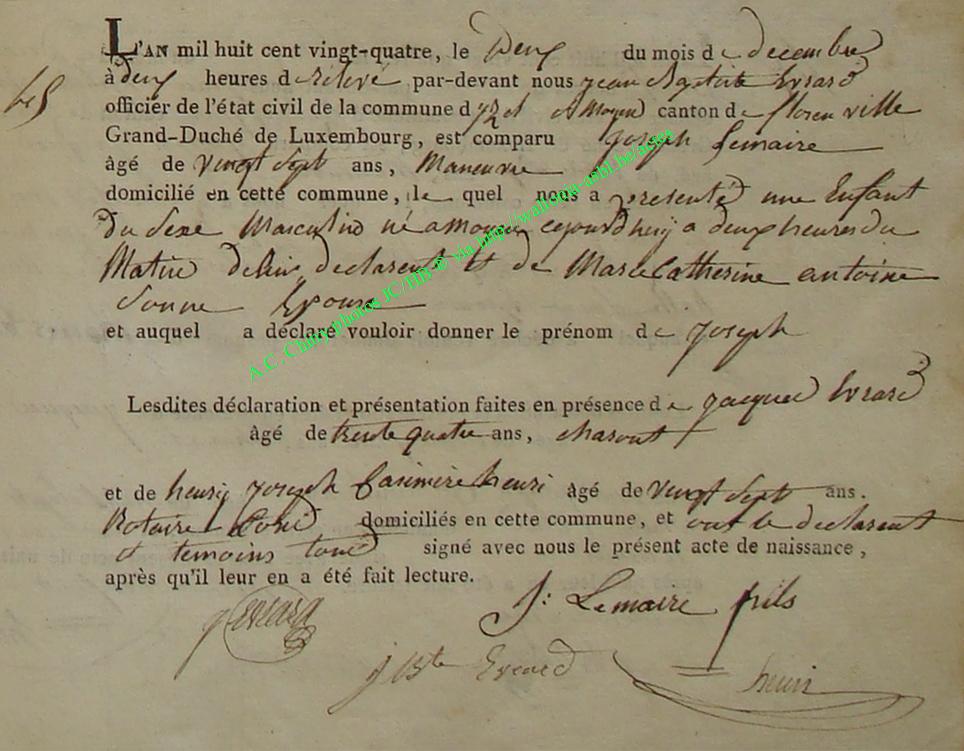 L'AN mil huit cent vingt-quatre, le Deux du mois de decembre
à deux heures de relevé par-devant nous jean Baptiste Evrard
officier de l'état civil de la commune d' Moyen canton de florenville
Grand-Duché de Luxembourg, est comparu joseph Lemaire
âgé de vingt sept ans, Maneuvre
domicilié en cette commune, le quel nous a presenté une Enfant
du sexe Masculin né a Moyen cejourdhuij a deux heures du
Matin de lui declarent et de Marie Catherine antoine
sonne Epouse
et auquel a déclaré vouloir donner le prénom de joseph
Lesdites déclaration et présentation faites en présence de jacques Evrard
âgé de trente quatre ans, charont
et de henry joseph Casimire henri âgé de vingt sept ans.
Notaire domiciliés en cette commune, et ont le declarent
et temoins tous signé avec nous le présent acte de naissance,
après qu'il leur en a été fait lecture.
j Evrard
J: Lemaire fils
j Bte Evrard
henri
A.C. Chiny photos JC/HB © via http://wallonia-asbl.be/actes